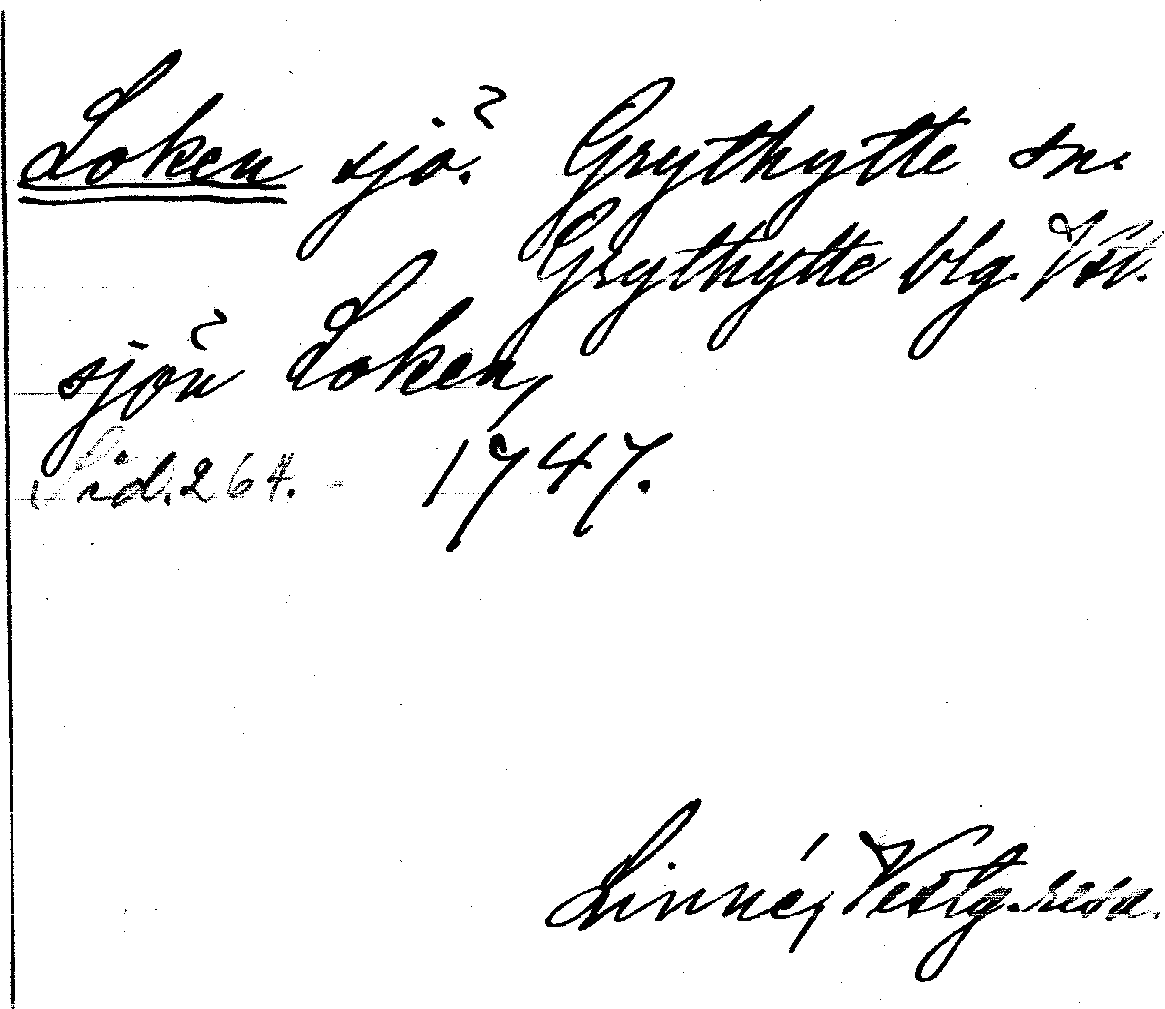 Loken sjö. Grythytte sn.
Grythytte blg. Vstl.
sjön Loken,
Sid. 264. 1747.
Linné, Vestg. resa.